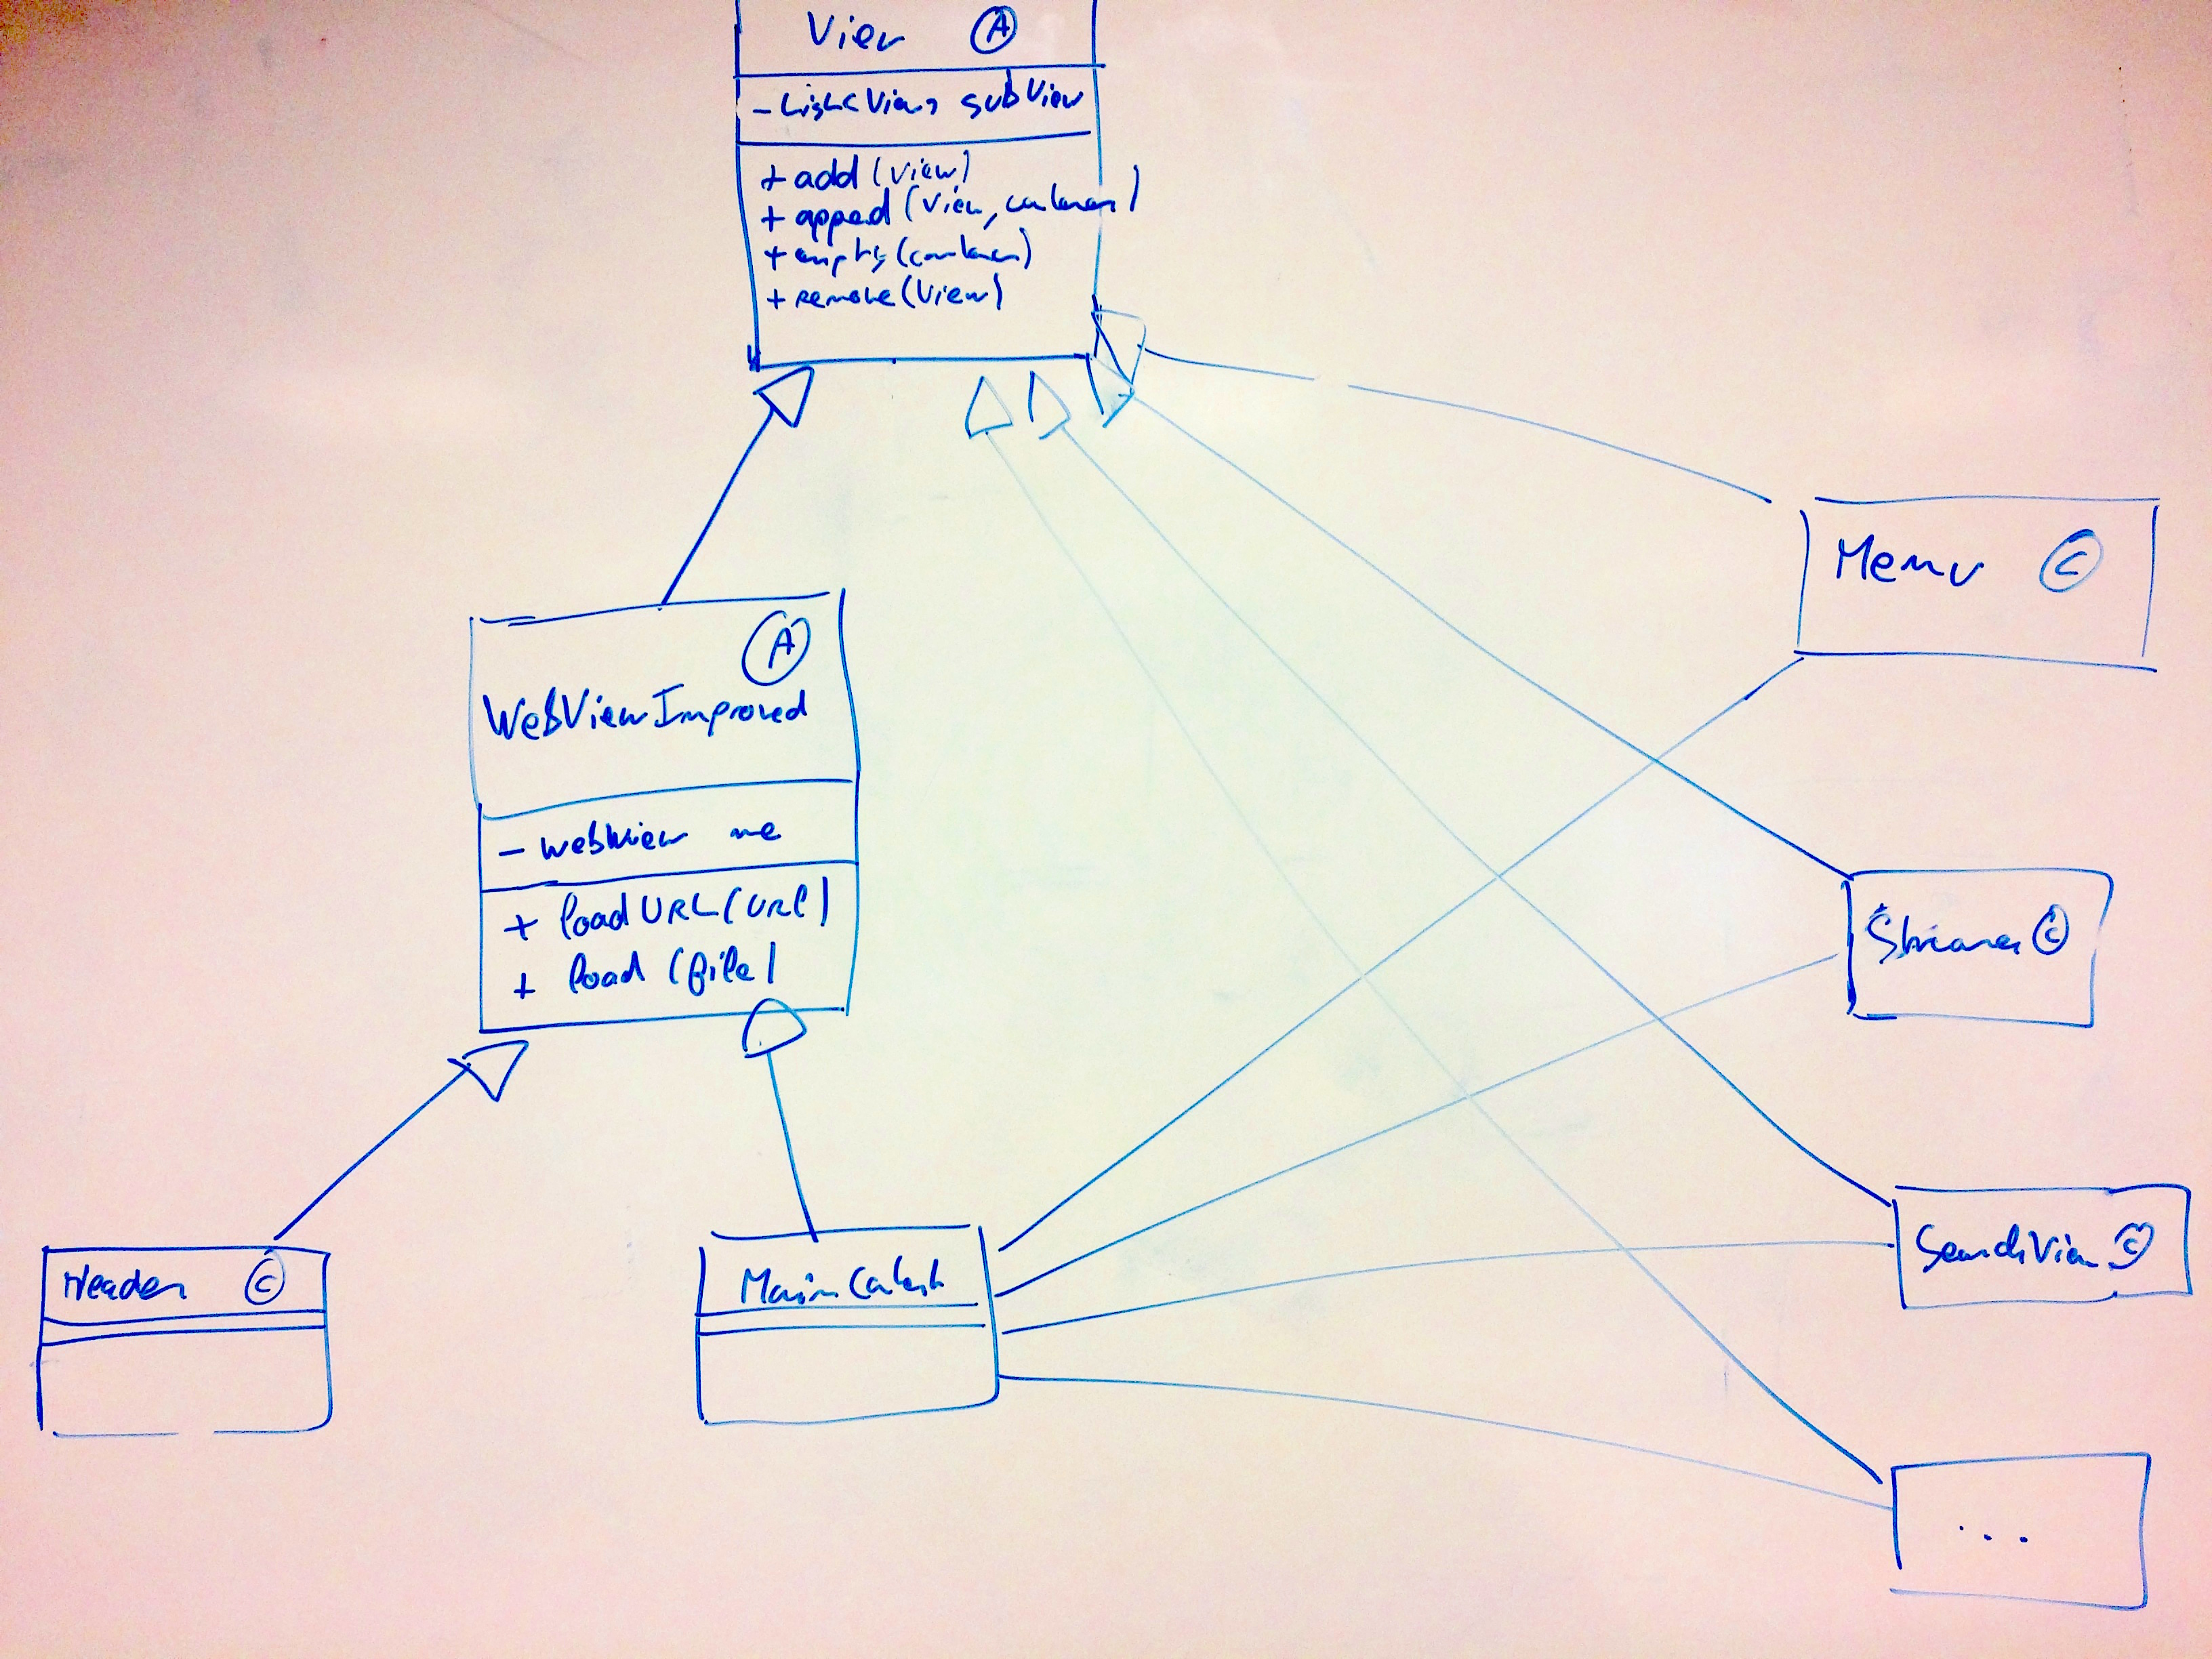 View A
- List<View> subView
+ add (View)
+ append (View, container)
+ empty (container)
+ remove (View)
Menu C
A
WebViewImproved
- webView me
+ loadURL (URL)
+ load (file)
C
SearchView C
Header C
Main
...